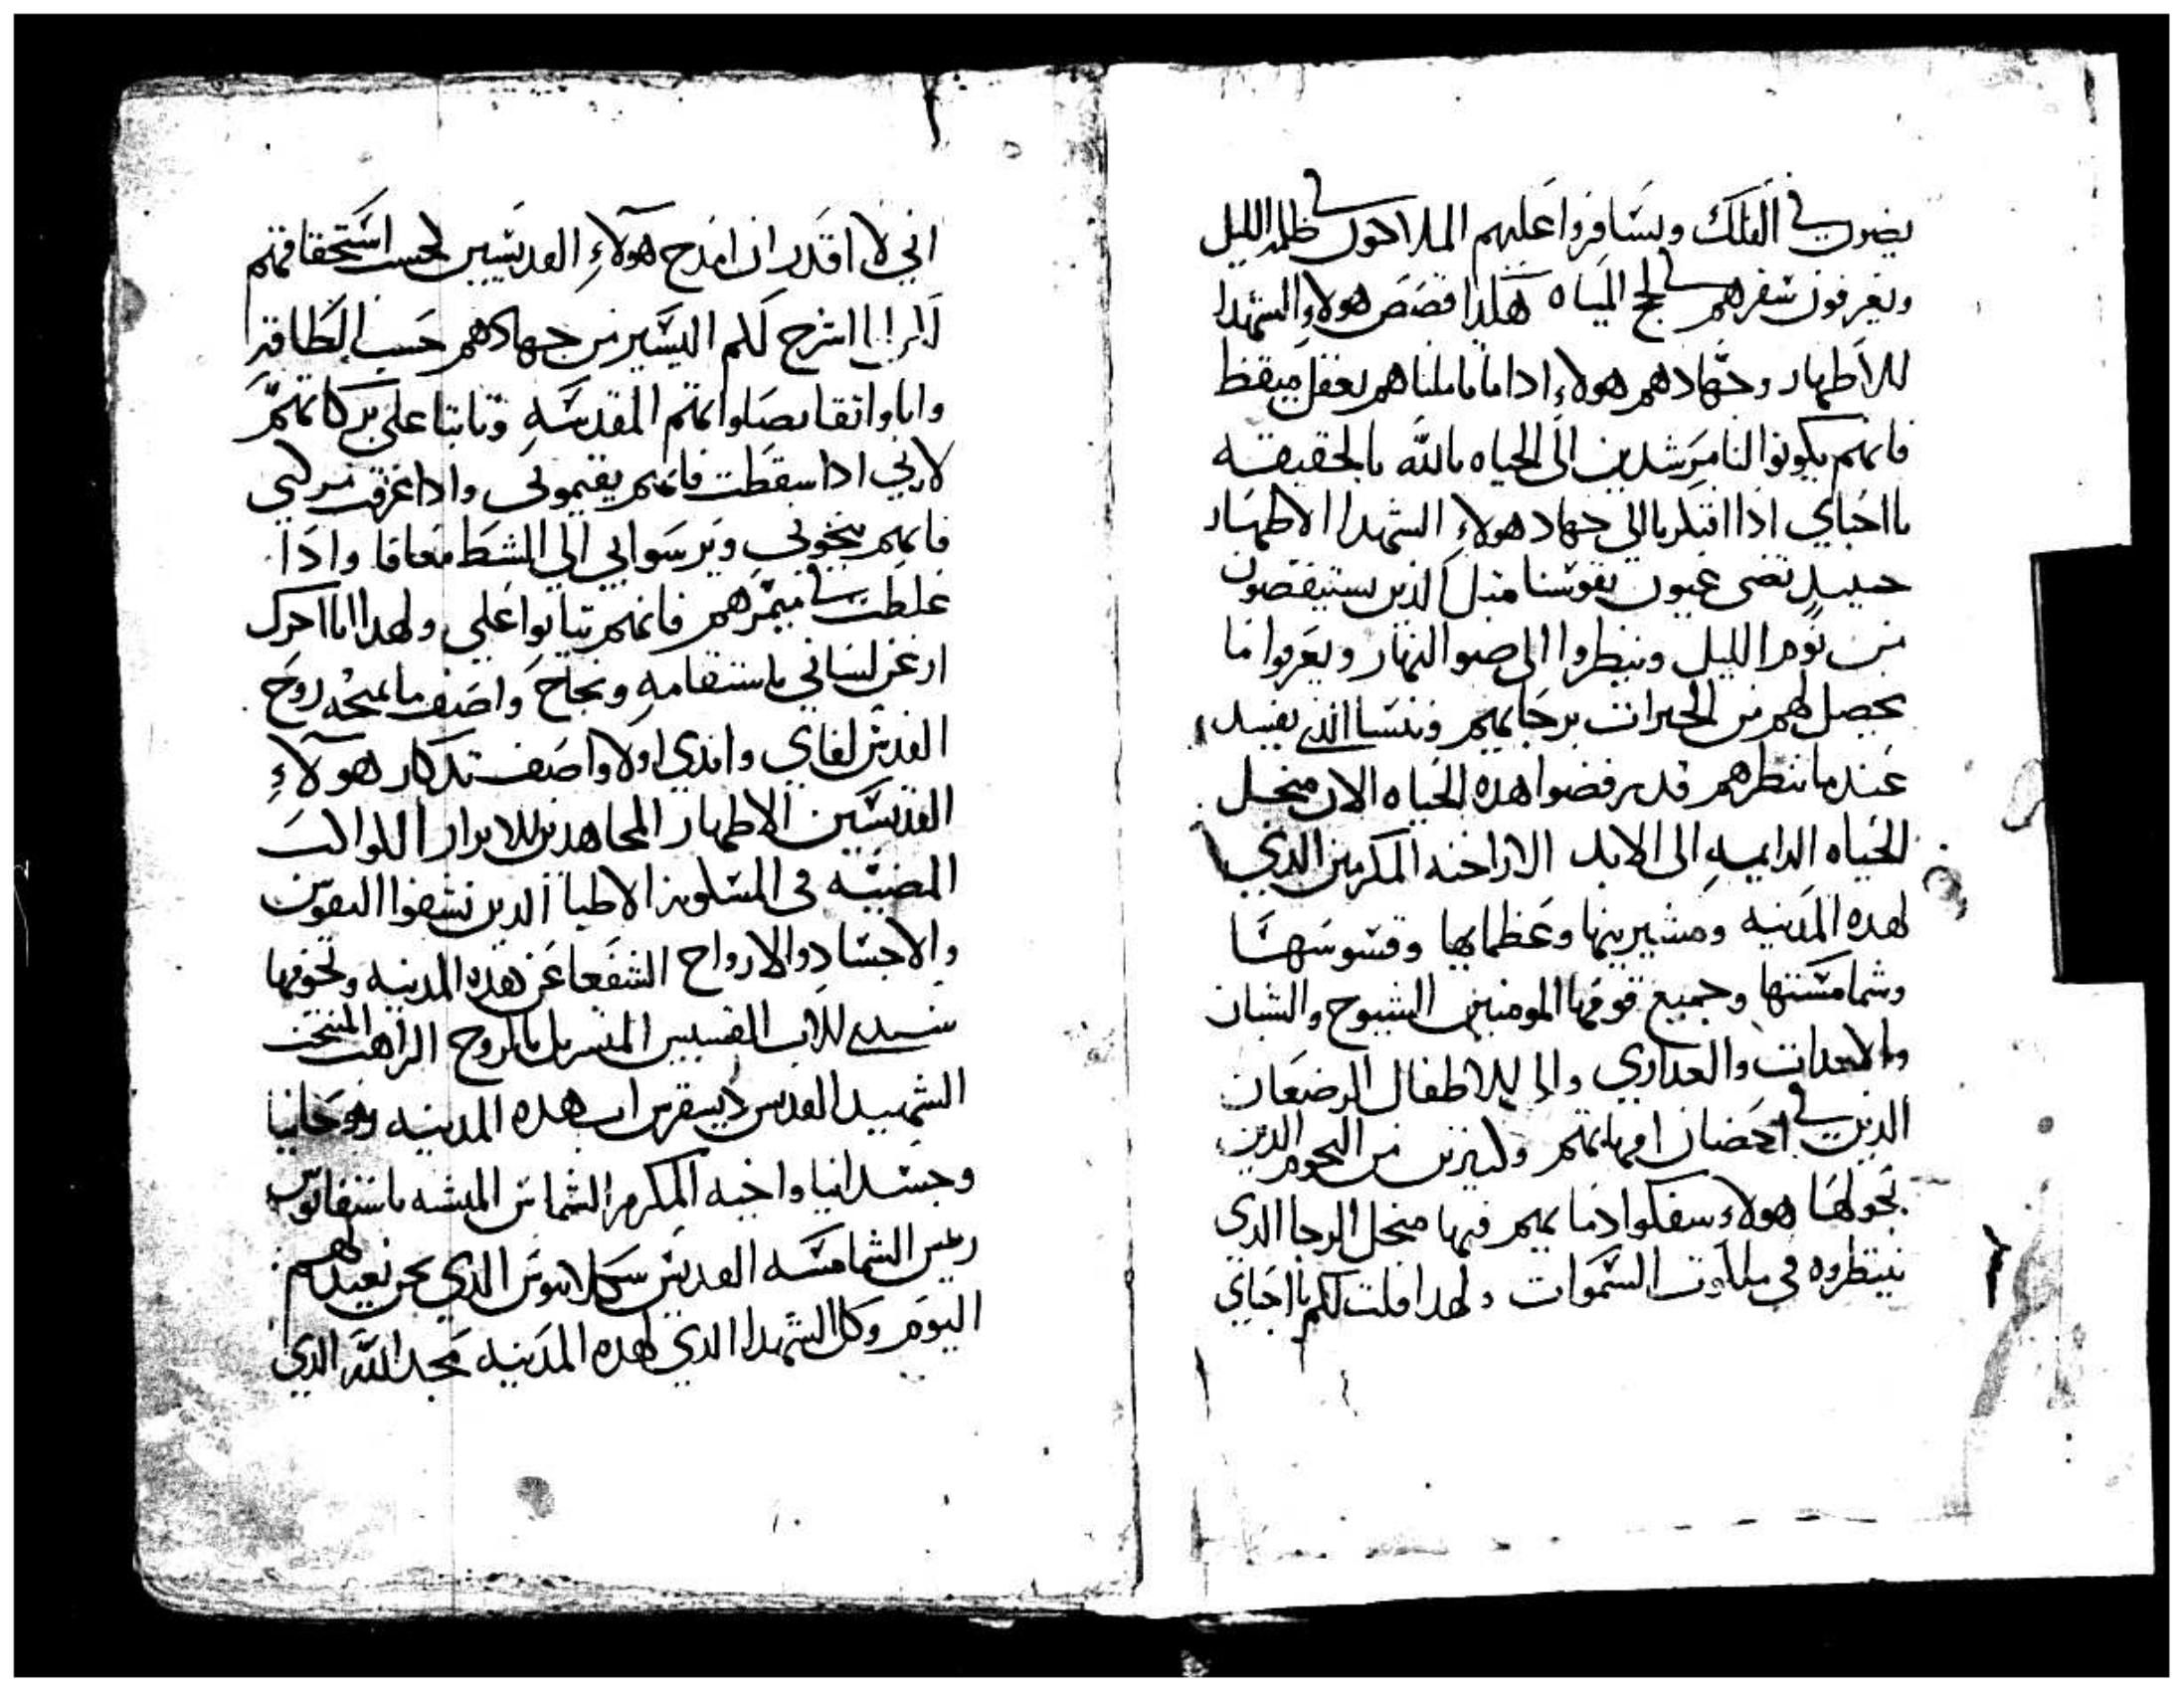 يضون في الفلك ويسافروا عليهم الملاحون في ظلمة الليل
ويعرفون سفرهم في لجج المياه هكذا قصص هولاء الشهدا
للاطهار وجهادهم هولاء اذا ما تاملناهم بعقل ميقظ
فانهم يكونوا لنا مرشدين الى الحياه بالله بالحقيقه
يا احباي اذا افتكرنا الي جهاد هولاء الشهدا الاطهار
حينيد تضى عيون نفوسنا مثل الذين يستيقضون
من نوم الليل وينظروا الى ضو النهار ويعرفوا ما
يحصل لهم من الخيرات برجايهم وننسا الذي يفسد
عندما ننظرهم قد رفضوا هذه الحياه الان من اجل
الحياه الدايمه الى الابد الاراخنه المكرمين الذي
لهذه المدينه ومشيرينها وعظمايها وقسوسها
وشمامستها وجميع قومها المومنين الشيوخ والشبان
والامهات والعداري والى الاطفال الرضعان
الذين في احضان امهاتهم وكثيرين من التخوم الذين
بحولها هولاء سفكوا دمايهم فيها من اجل الرجا الذي
ننتظروه في ملكوت السموات ولهدا قلت لكم يا احباي
اني لا اقدر ان امدح هولاء القديسين لحسب استحقاقهم
اشرح لكم اليسير من جهادهم حسب الطاقه
وانا واثقا بصلواتهم المقدسه وثابتا على بركاتهم
لانني اذا سقطت فانهم يقيموني واذا غرقت مركبي
فانهم ينجوني ويرسوا بي الي الشط معافا واذا
غلطت في ميمرهم فانهم يتانوا علي ولهدا انا احرك
ارغن لساني باستقامه ونجاح واصف ما يمنحه روح
القدس لفاي وابدي اولا واصف تدكار هولاء
القديسين الاطهار المجاهدين الابرار الكواكب
المضييه في المسكونه الاطبا الذين نشفوا النفوس
والاجساد والارواح الشفعا عن هذه المدينه وتخومها
سيدي الاب القسيس المتسربل بالروح الراهب المنتخب
الشهيد القديس ديسقرس اب هذه المدينه روحانيا
وجسدانيا واخيه المكرم الشماس المتشبه باستفانوس
رييس الشمامسه القديس سكلابيوس الذي نحن نعيد لهم
اليوم وكل الشهدا الذي لهذه المدينه مجد الله الذي